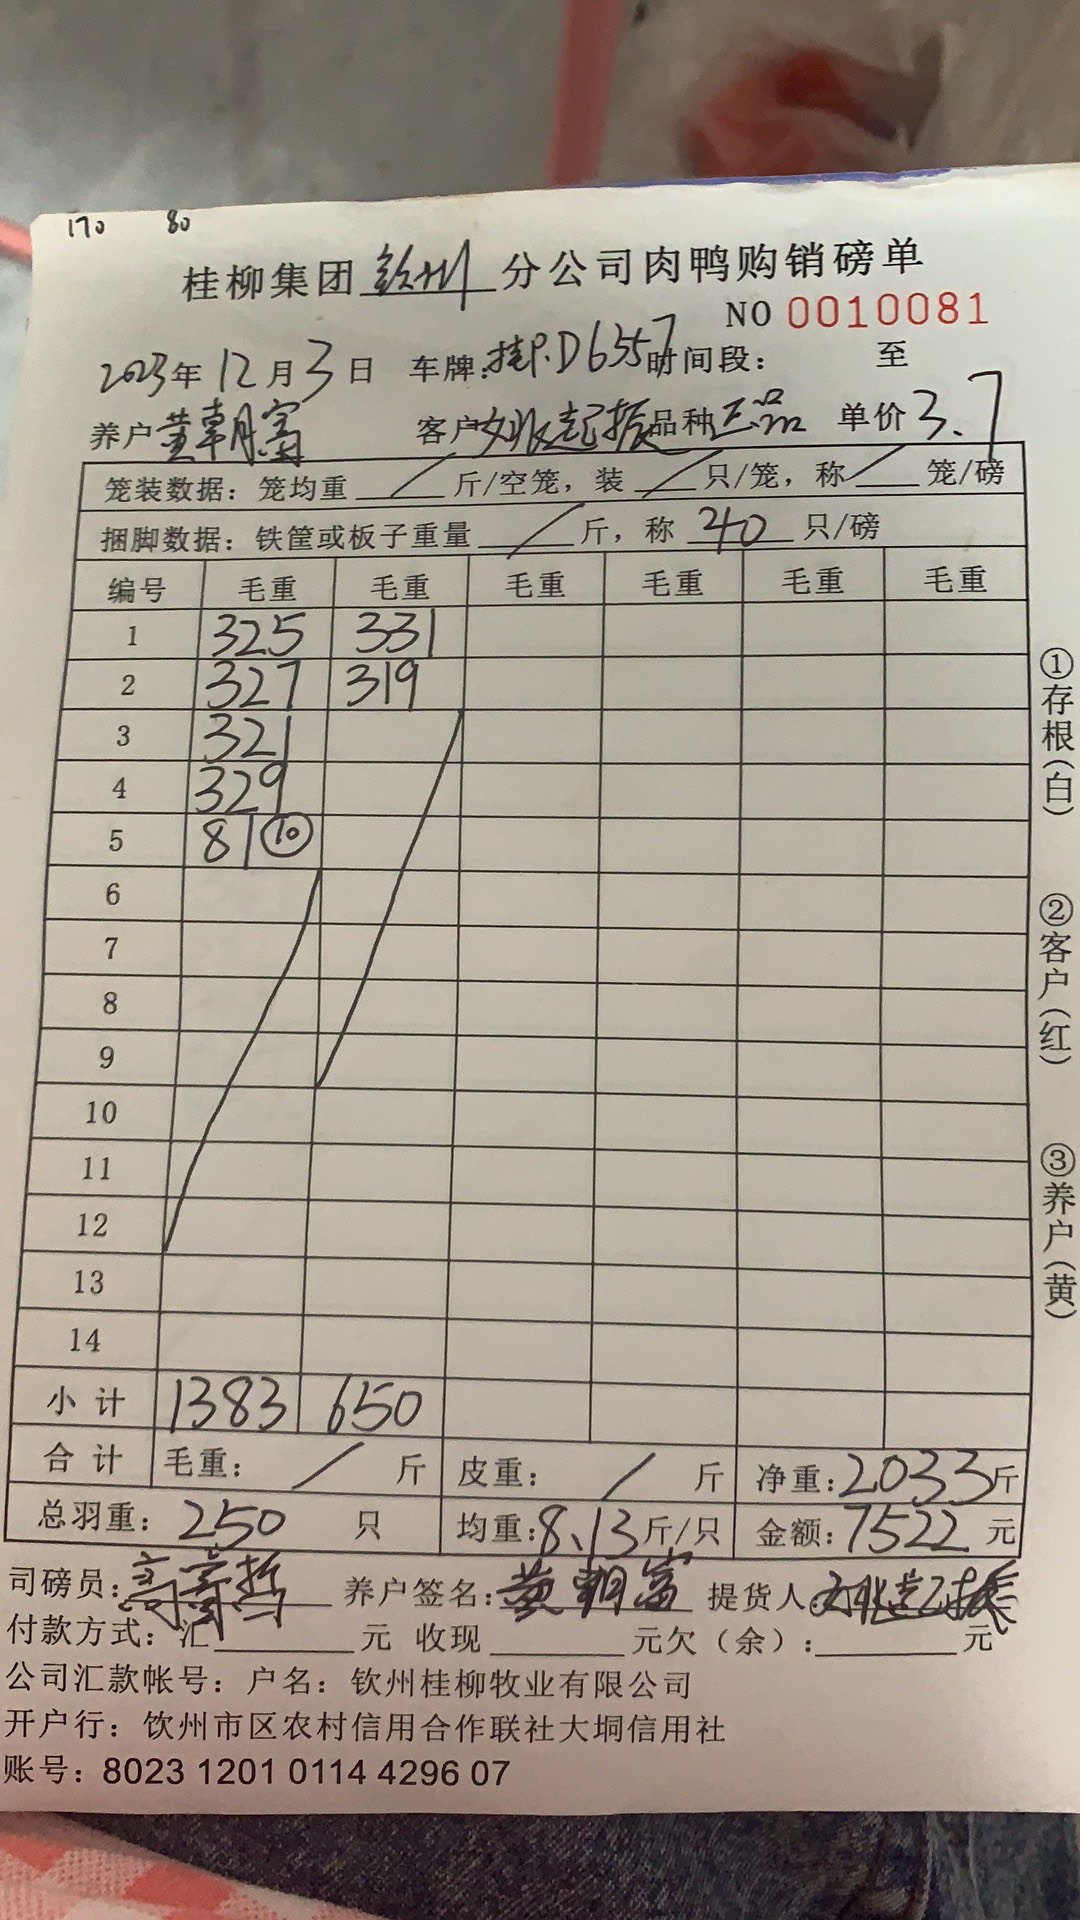 170 80
桂柳集团钦州分公司肉鸭购销磅单
NO 0010081
2023年12月3日 车牌:桂P.D6557 时间段: 至
养户黄朝富 客户 起振 品种正品 单价3.7
笼装数据:笼均重 / 斤/空笼,装 / 只/笼,称 / 笼/磅
捆脚数据:铁筐或板子重量 / 斤,称 40 只/磅
编号 毛重 毛重 毛重 毛重 毛重 毛重
1 325 331
2 327 319
3 321
4 329
5 81 ⑩
6
7
8
9
10
11
12
13
14
小计 1383 650
合计 毛重: / 斤 皮重: / 斤 净重:2033斤
总羽重: 250 只 均重:8.13斤/只 金额:7522 元
司磅员: 养户签名:黄朝富 提货人:
付款方式:汇 元 收现 元欠(余): 元
公司汇款帐号:户名:钦州桂柳牧业有限公司
开户行:钦州市区农村信用合作联社大垌信用社
账号:8023 1201 0114 4296 07
①存根(白)
②客户(红)
③养户(黄)